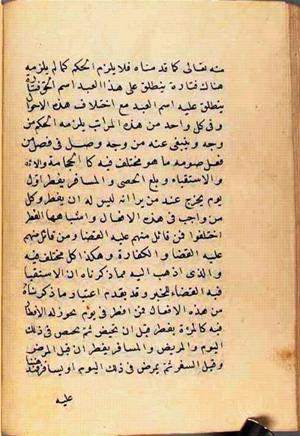 منه تعالى كما قدمناه فلا يلزم الحكم كما لم يلزمه
هناك فتارة ينطلق على هذا العبد اسم الحق وتارة
ينطلق عليه اسم العبد مع اختلاف هذه الاحوال
وفي كل واحد من هذه المراتب يلزمه الحكم من
وجه وينتفي عنه من وجه وصل في فصل من
فعل صومه ما هو مختلف فيه كالحجامة
والاستقاء وبلع الحصى والمسافر يفطر اول
يوم يخرج عند من يرا انه ليس له ان يفطر وكل
من واجب في هذه الافعال واشباهها الفطر
اختلفوا فمن قائل منهم عليه القضا ومن قائل منهم
عليه القضا والكفارة وهكذا كل مختلف فيه
والذي اذهب اليه مما ذكرناه ان الاستقيا
فيه القضا للخبر وقد يقدم اعتبار ما ذكرناه
من هذه الافعال فمن افطر في يوم يجوز له الافطار
فيه كالمرة يفطر قبل ان تحيض ثم تحيض في ذلك
اليوم والمريض والمسافر يفطر ان قبل المرض
وقبل السفر ثم يمرض في ذلك اليوم او يسافر
عليه